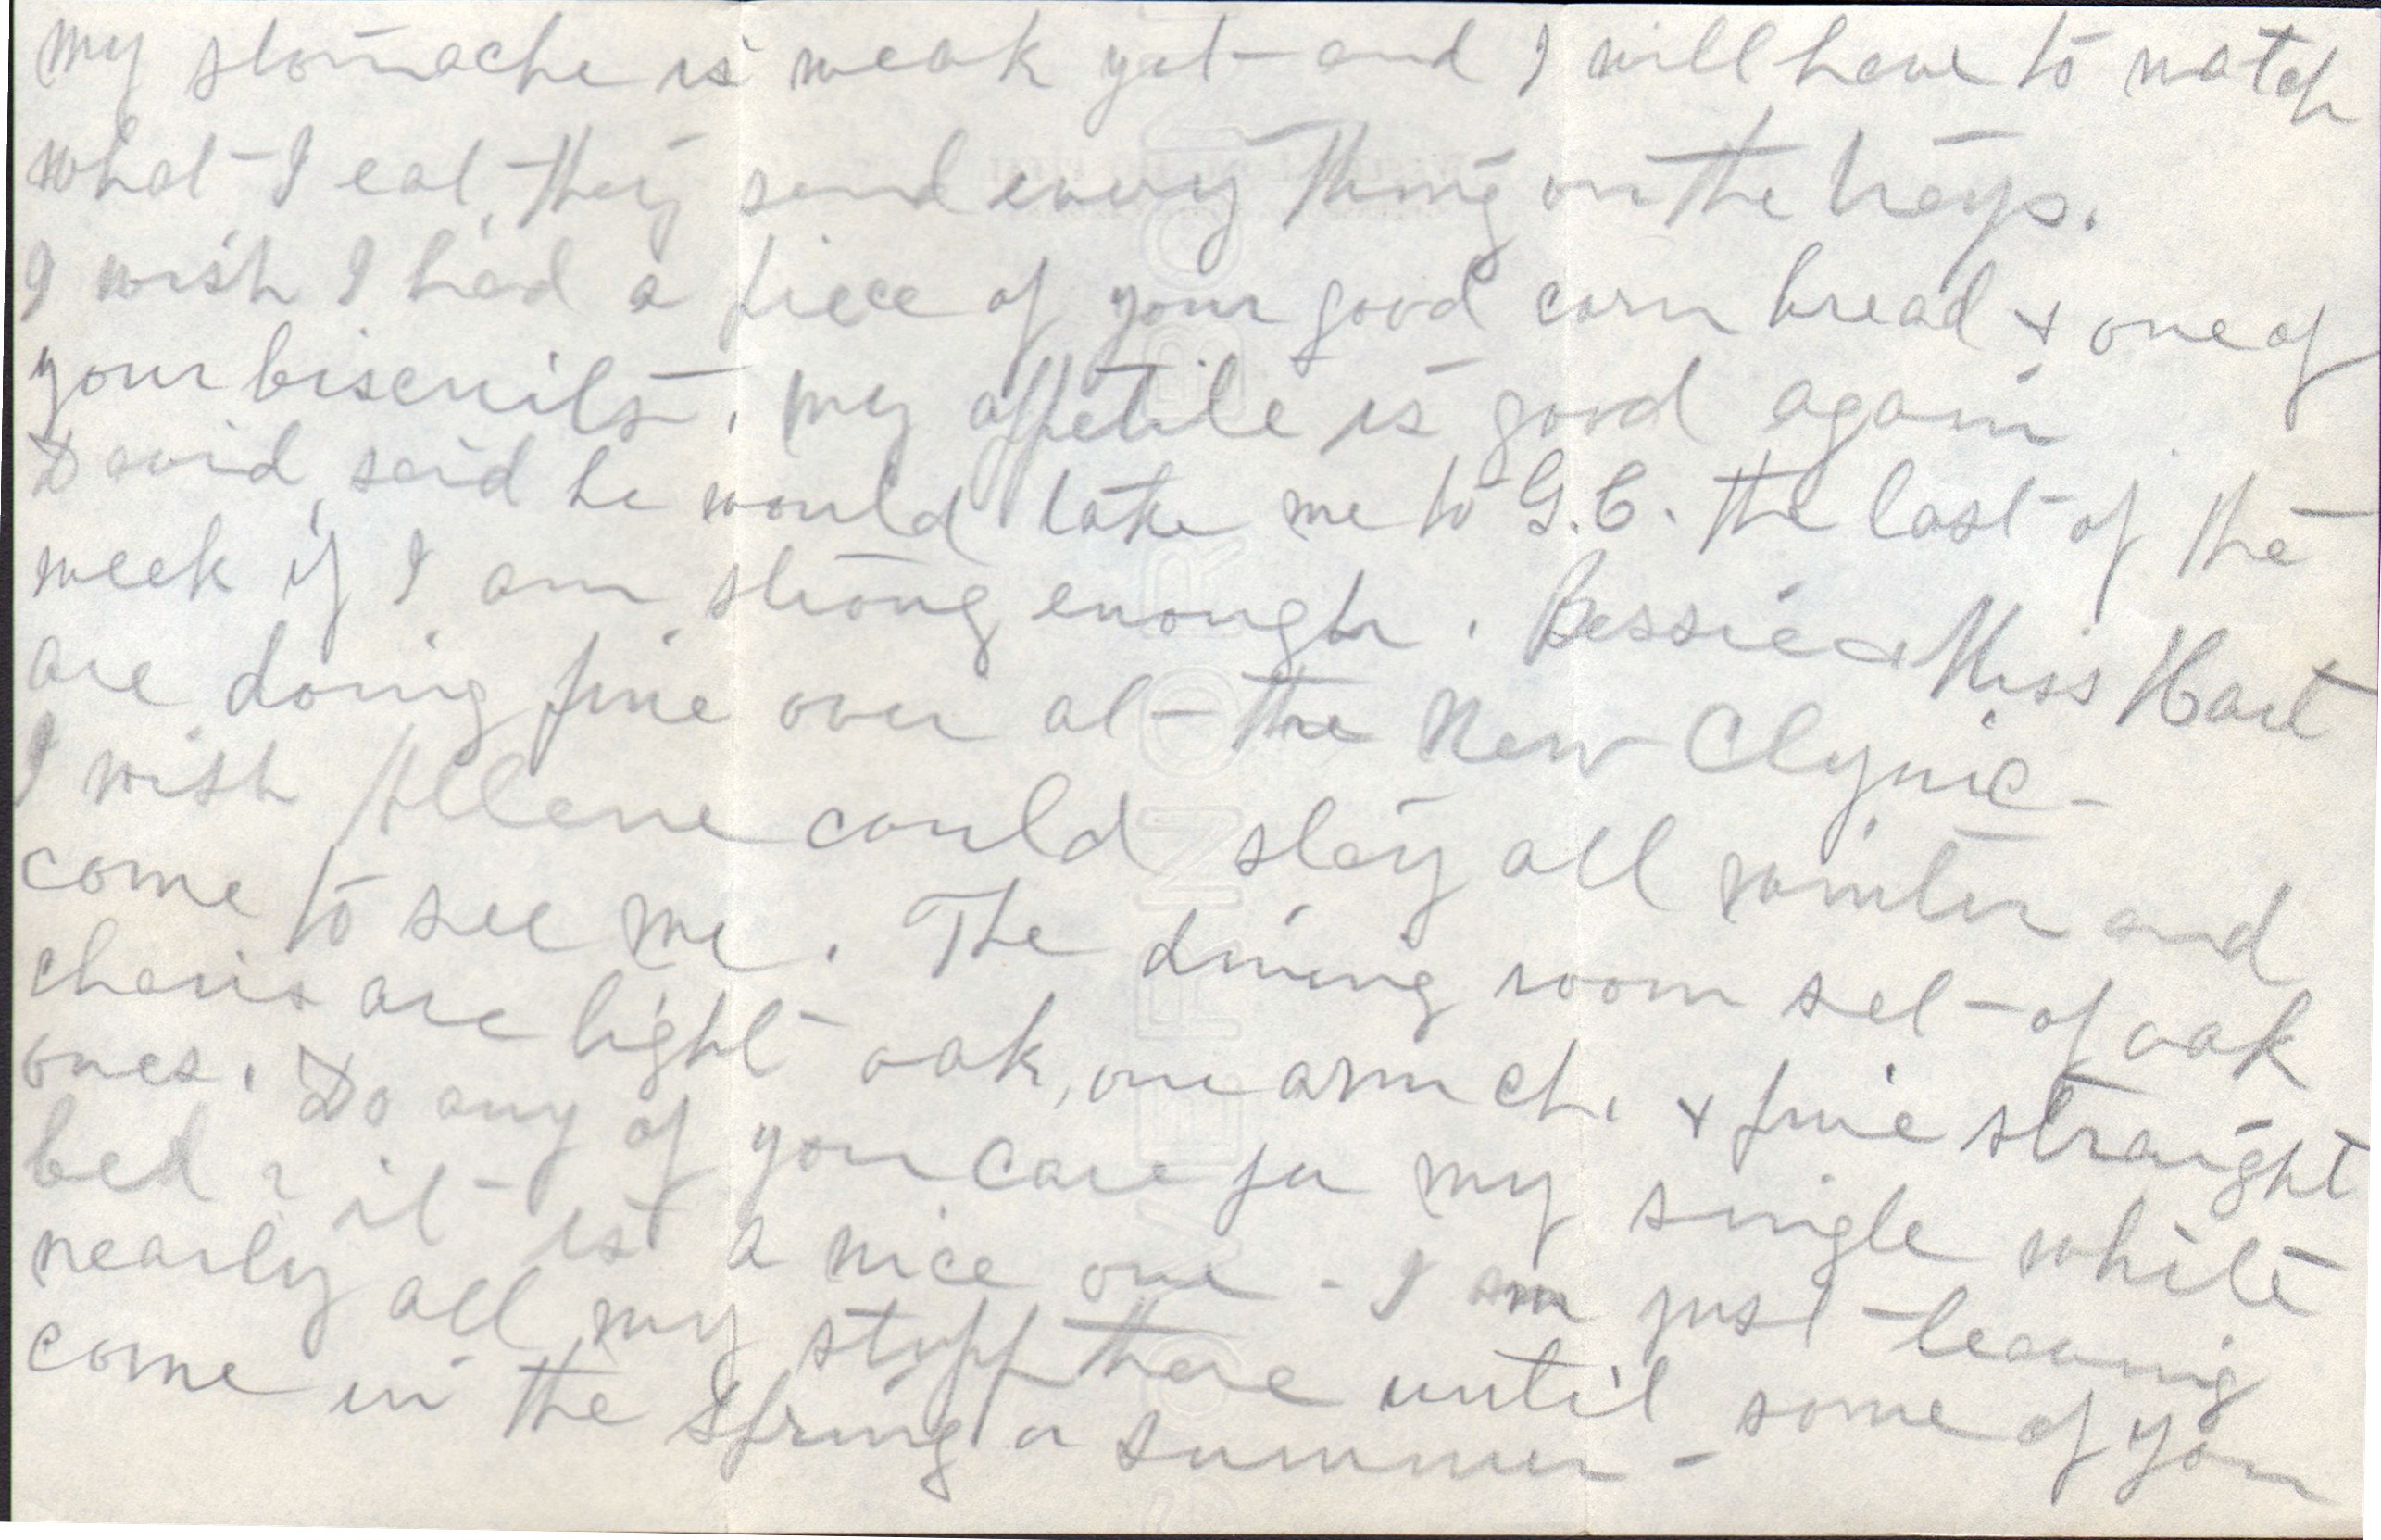 my stomache is weak yet - and I will have to watch
what I eat, they send every thing on the trays.
I wish I had a piece of your good corn bread & one of
your biscuits. My appetite is good again
David, said he would take me to G.C. the last of the
week if I am strong enough. Bessie & Miss Hart
are doing fine over at - the New Clynic -
I wish Allene could stay all winter and
come to see me. The dining room set - of oak
chairs are light oak, one arm ch. & five straight
ones. Do any of you care for my single white
bed? it is a nice one - I am just leaving
nearly all my stuff there until some of you
come in the Spring or summer -